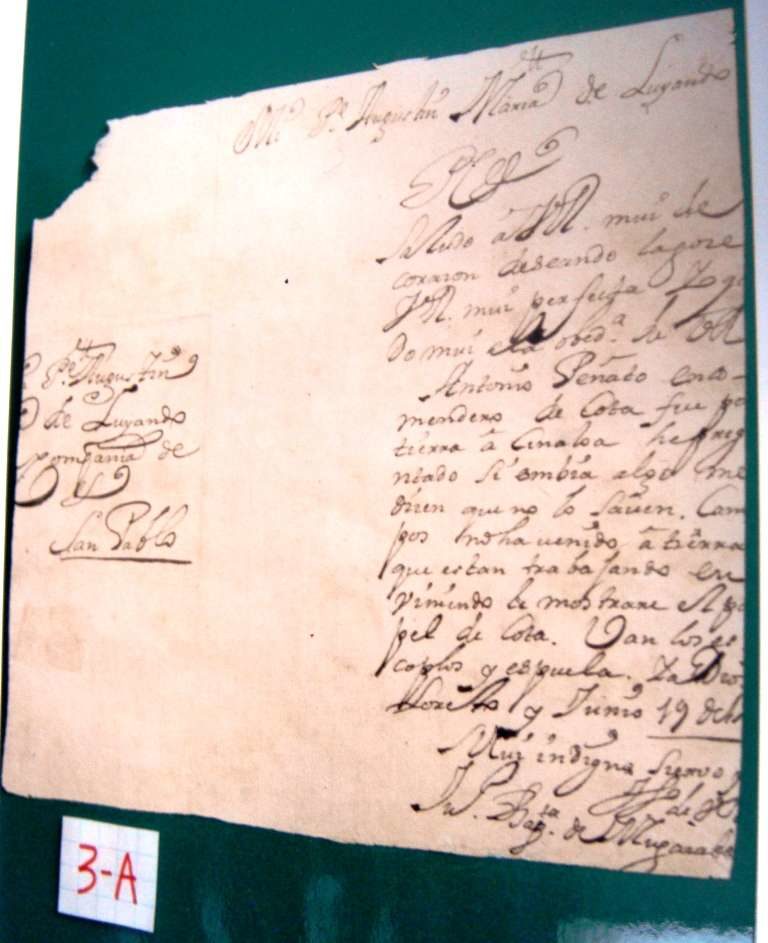 Mro. Pe. Augustin Maria de Luyando
P. C. &
Saludo â VR. mui de
corazon deseando la goze
VR. mui perfecta
do mui a la obeda. de VR
Antonio Peñato enco-
mendero de Cota fue po
tierra â Cinaloa he preg
ntado si embia algo me
dizen que no lo saven. Cam
pos no ha venido â tierra
que estan trabajando en
viniendo le mostrare el pa
pel de Cota. Van los es
coplos y espuela.
Loreto y Junio 19 de
Mui indigno siervo
Ju. Bapta. de Mugaza
Pe. Augustin
de Luyando
Compania de
San Pablo
3-A